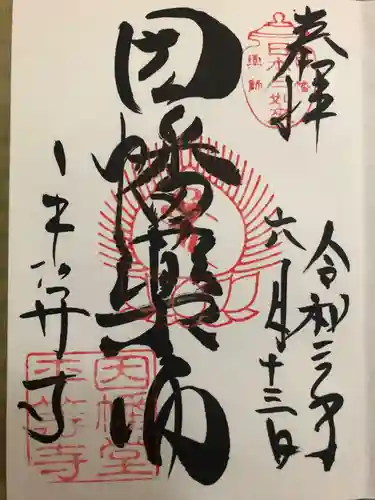 奉拝
令和三年
六月十三日
因幡薬師
平等寺
因幡堂
平等寺